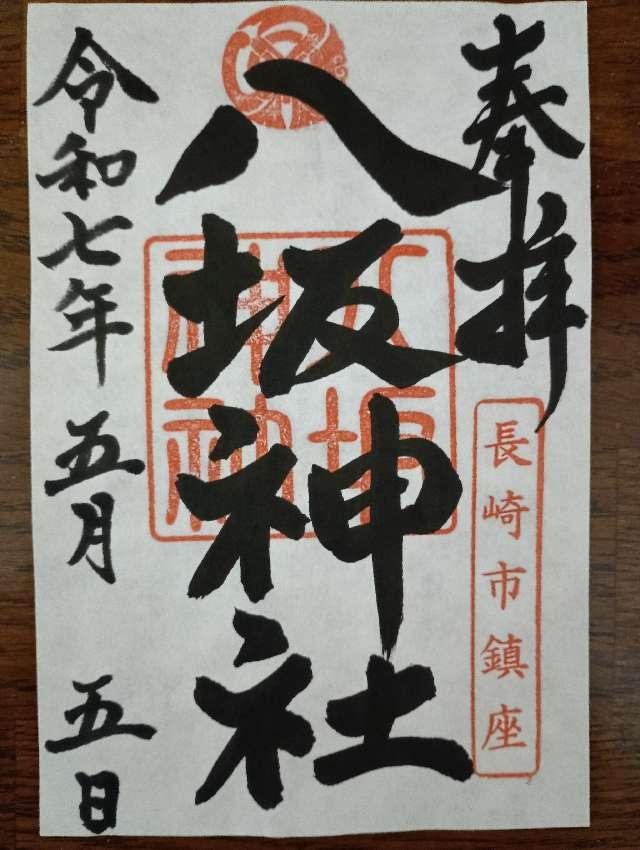 奉拝
長崎市鎮座
八坂神社
令和七年五月五日